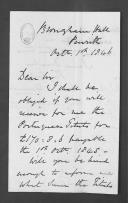 Brougham Hall
Penrith
Octr 1st 1846
Dear Sir
I shall be
obliged if you will
receive for me the
Portuguese
for
£170: 8. 6 payable
the 1st Octr,
Will you be kind
enough to inform me
what
the